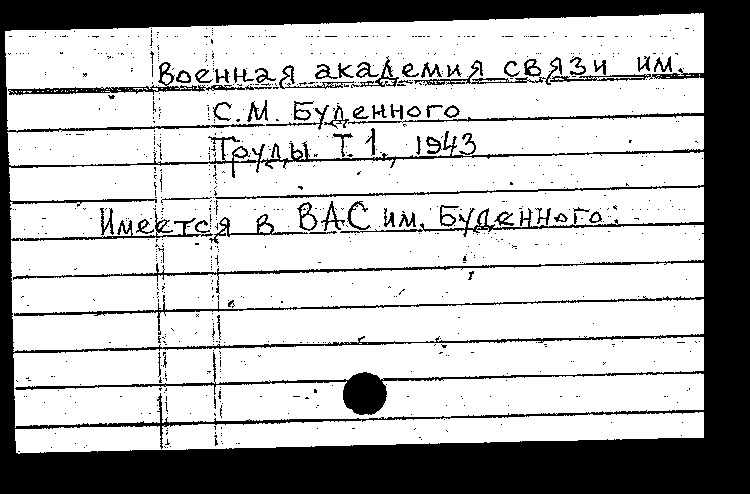 Военная академия связи им.
С.М. Буденного.
Труды. Т. 1., 1943
Имеется в ВАС им. Буденного.